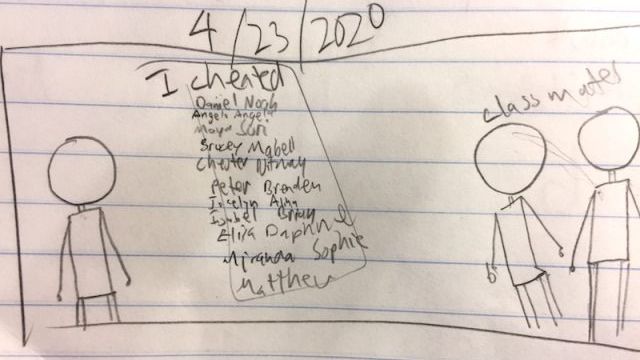 4/23/2020
I cheated
Daniel Noah
Angelo Angela
Maya Sori
Brucey Mabell
Chester
Peter Brenden
Jocelyn Alna
Isabel Brian
Eliza Daphne
Miranda Sophie
Matthew
classmates